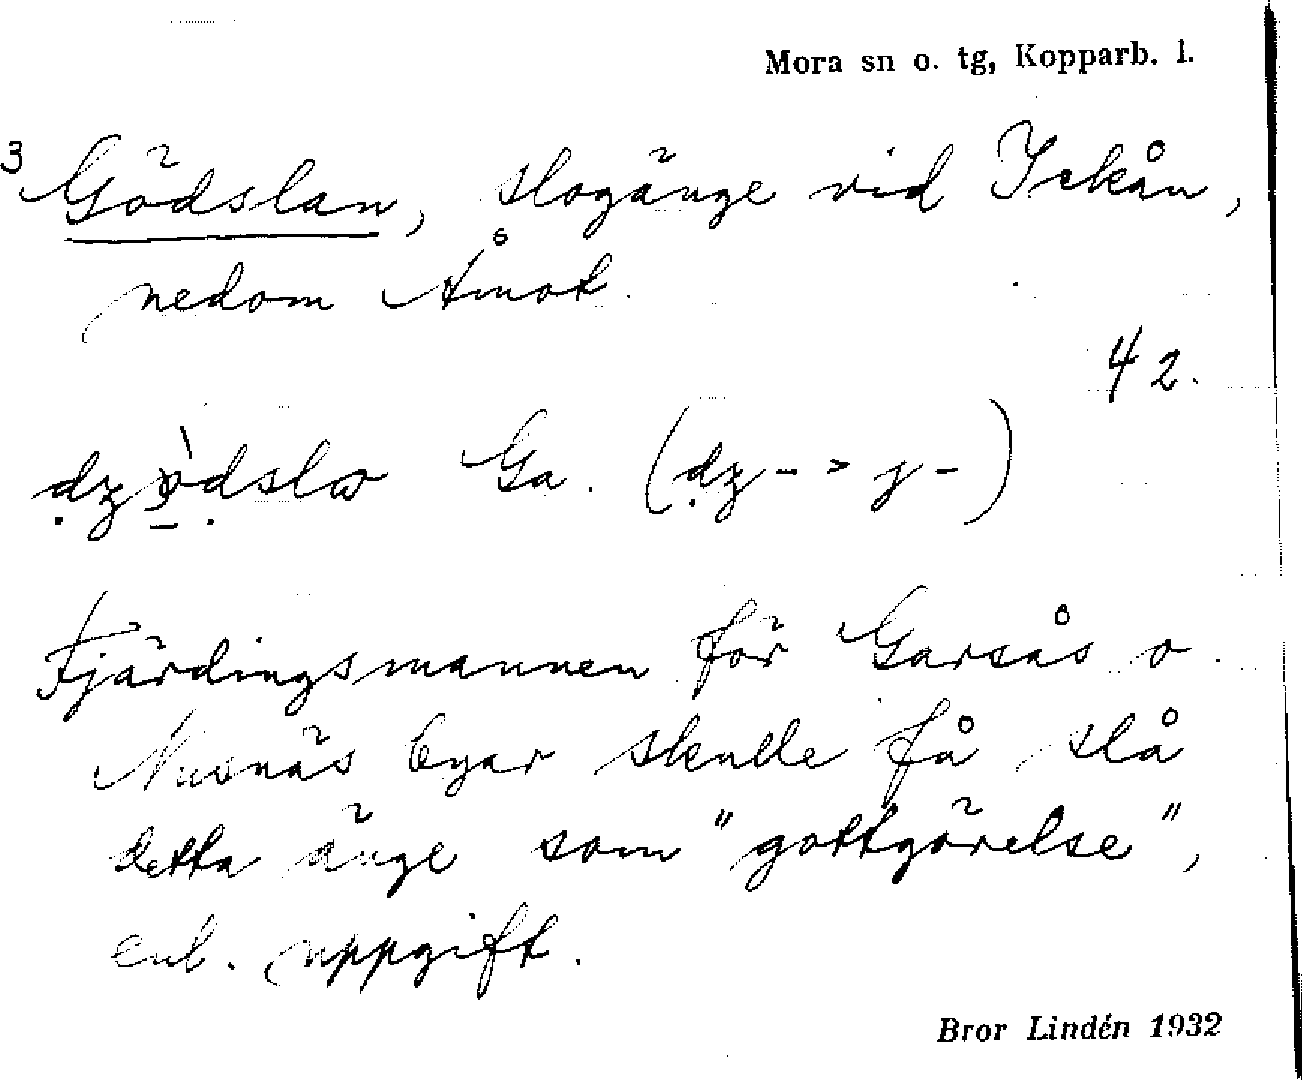 Mora sn o. tg, Kopparb. l.
3 Gödslan, slogänge vid Ickån,
nedom Åmot.
42.
Ga. (dz- > j-)
Fjärdingsmannen för Garsås o
Nusnäs byar skulle få slå
detta änge som "gottgörelse",
enl. uppgift.
Bror Lindén 1932